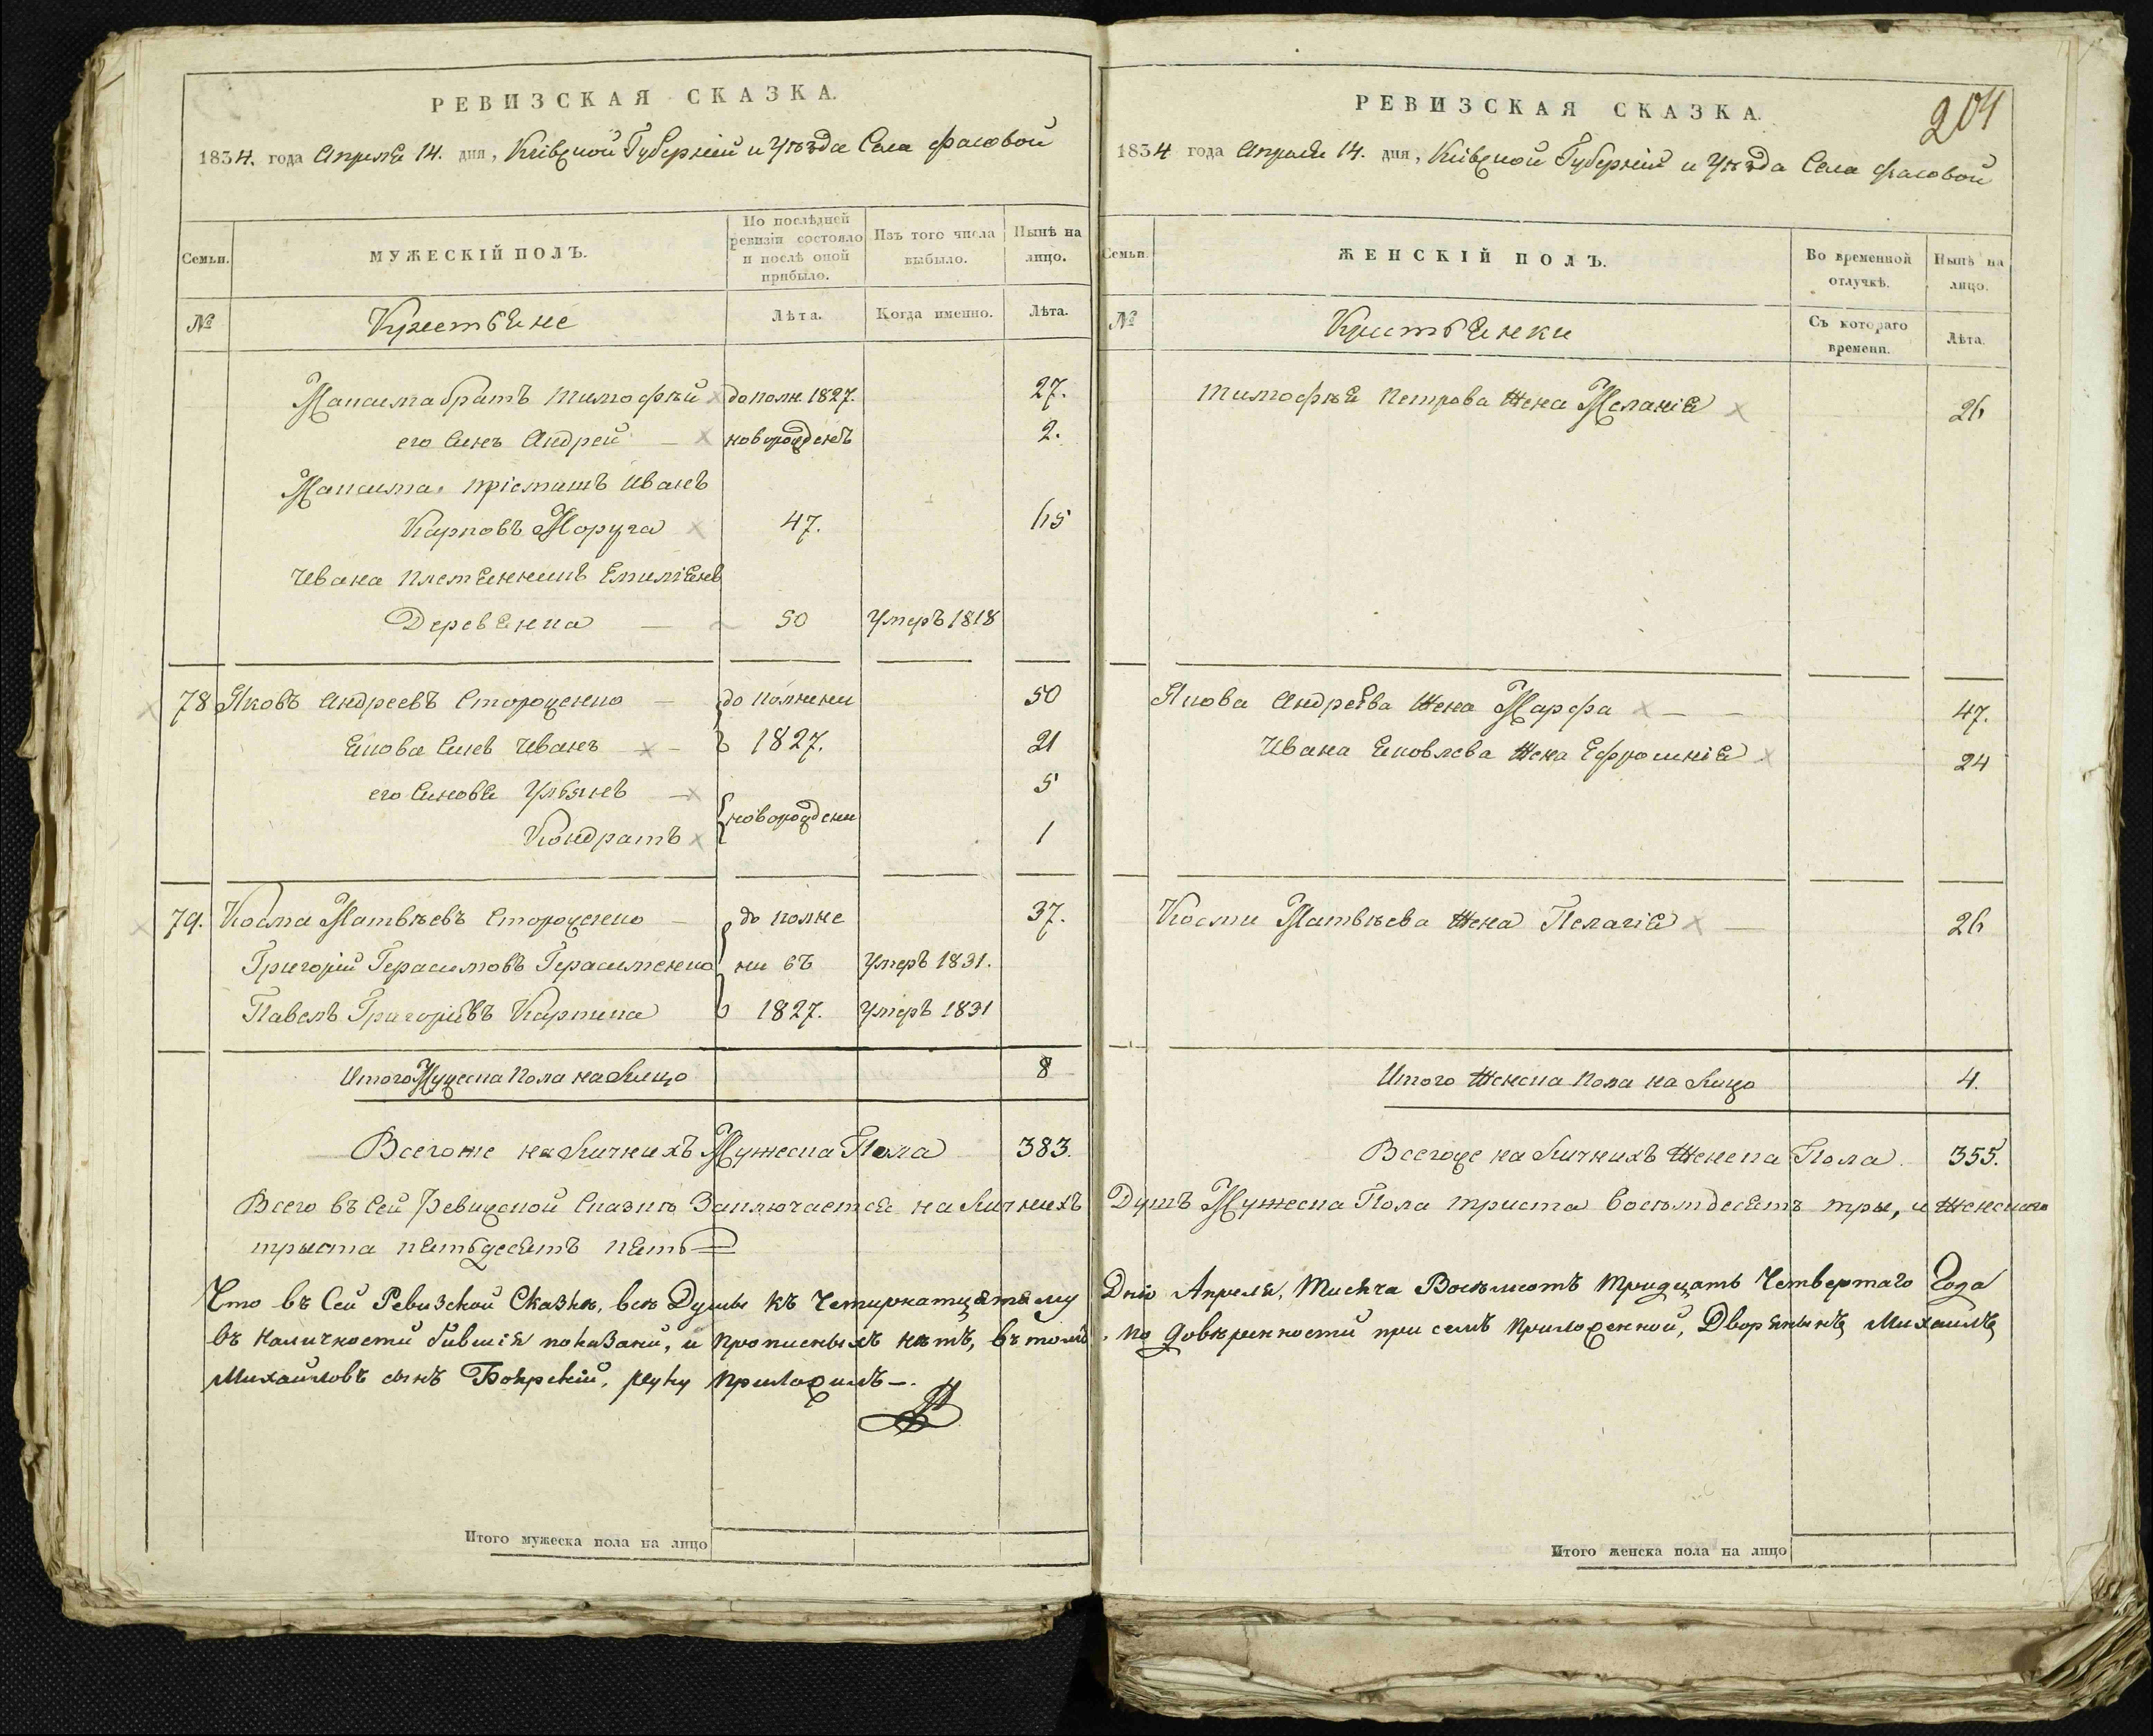 РЕВИЗСКАЯ СКАЗКА.
1834. года Апреля 14. дня, Кіевской Губерніи и Уѣзда Села Фасовой
Семьи.
МУЖЕСКІЙ ПОЛЪ.
По послѣдней ревизіи состояло и послѣ оной прибыло.
Изъ того числа выбыло.
Нынѣ на лицо.
№
Крестьяне
Лѣта.
Когда именно.
Лѣта.
Максима братъ Тимофѣй дополн. 1827. 27.
его Синъ Андрей — новорожденъ 2.
Максима пріемишъ Иванъ
Карповъ Моруга 47. 65
Ивана племянникъ Емиліянъ
Деревянка — 50 Умеръ 1818
78 Яковъ Андреевъ Стороженко — до полнени 50
Якова Синъ Иванъ — 1827. 21
его Синовя Ульянъ — 5
Кондратъ новорождени 1
79. Косма Матвѣевъ Стороженко — до полне 37.
Григорій Герасимовъ Герасименко ни въ Умеръ 1831.
Павелъ Григоріевъ Карпика 1827. Умеръ 1831
Итого Мужеска Пола на Лицо 8
Всегоже на Личнихъ Мужеска Пола 383.
Всего въ Сей Ревизской Сказкѣ Заключается на Личнихъ
триста пятьдесятъ пять
Что въ Сей Ревизской Сказкѣ, всѣ Души къ Четирнатцятому
въ наличности бившія показани, и прописныхъ нѣтъ, въ томъ
Михайловъ синъ Боярскій, руку приложилъ —.
Итого мужеска пола на лицо
РЕВИЗСКАЯ СКАЗКА.
204
1834 года Апреля 14. дня, Кіевской Губерніи и Уѣзда Села Фасовой
Семьи.
ЖЕНСКІЙ ПОЛЪ.
Во временной отлучкѣ.
Нынѣ на лицо.
№
Крестьянки
Съ котораго времени.
Лѣта.
Тимофѣя Петрова Жена Меланія 26
Якова Андреева Жена Марфа — — 47.
Ивана Яковлева Жена Ефросинія 24
Косми Матвѣева Жена Пелагія — 26
Итого Женска Пола на Лицо 4.
Всегоже на Личнихъ Женска Пола. 355.
Душъ Мужеска Пола триста восѣмдесятъ три, и Женскаго
Дню Апреля, Тисяча Восѣмсотъ Тридцать Четвертаго Года
, по довѣренности при семъ приложенной, Дворянинъ Михаилъ
Итого женска пола на лицо